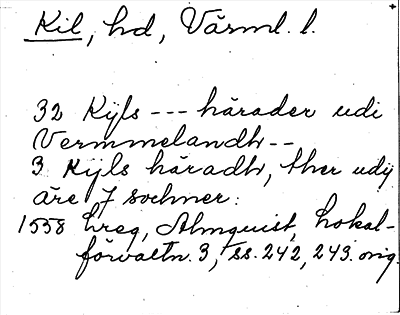 Kil, hd, Värml. l.
32 Kÿls --- härader udi
Vermmelandh --
3 Kÿls häradh, ther udÿ
äre 7 sochner:
1558 hreg, Almquist, Lokal-
förvaltn. 3, ss. 242, 243. orig.